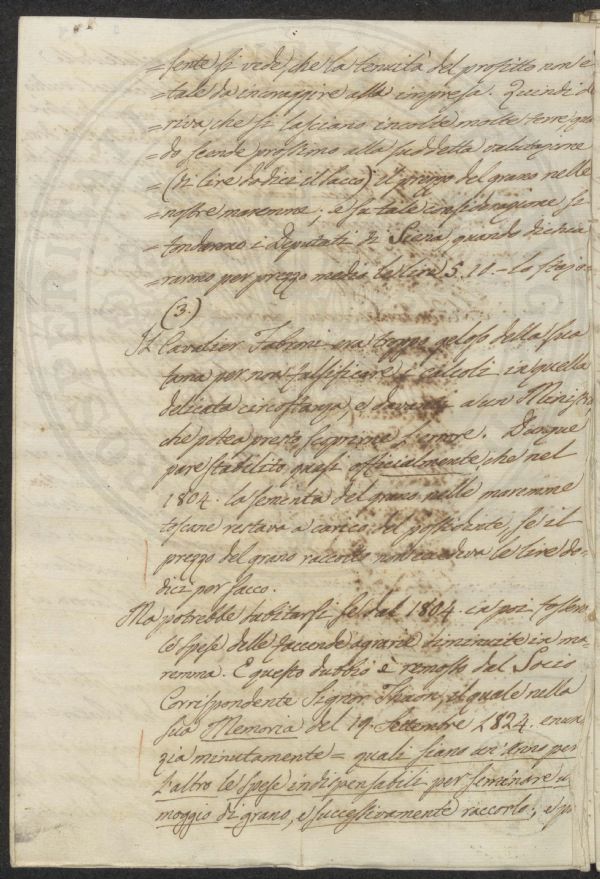 =sente si vede, che la tenuità del profitto non è
=tale da incoraggire alla impresa. Quindi de
=riva, che si lasciano incolte molte terre, quan
=do scende prossimo alla suddetta valutazione
=(di lire dodici il sacco) il prezzo del grano nelle
=nostre maremme; e su tale considerazione si
=fondarono i Deputati di Siena quando dichia
=rarono per prezzo medio le lire 5.10.- lo stajo=
(3.)
Il Cavalier Fabroni era troppo geloso della sua
fama per non falsificare i calcoli in quella
delicata circostanza, e davanti a un Ministro,
che potea presto scuprirne l'errore. Dunque
pare stabilito quasi officialmente, che nel
1804. la sementa del grano nelle maremme
toscane restava a carico del possidente, se il
prezzo del grano raccolto non eccedeva le lire do-
dici per sacco.
Ma potrebbe dubitarsi se dal 1804. in poi fossero
le spese delle faccende agrarie diminuite in ma-
remma. E questo dubbio è remosso dal Socio
Corrispondente Signor Thaon, il quale nella
sua Memoria del 19. Settembre 1824. enun
zia minutamente = quali siano un'anno per
l'altro le spese indispensabili per sementare un
moggio di grano, e successivamente raccorlo; e